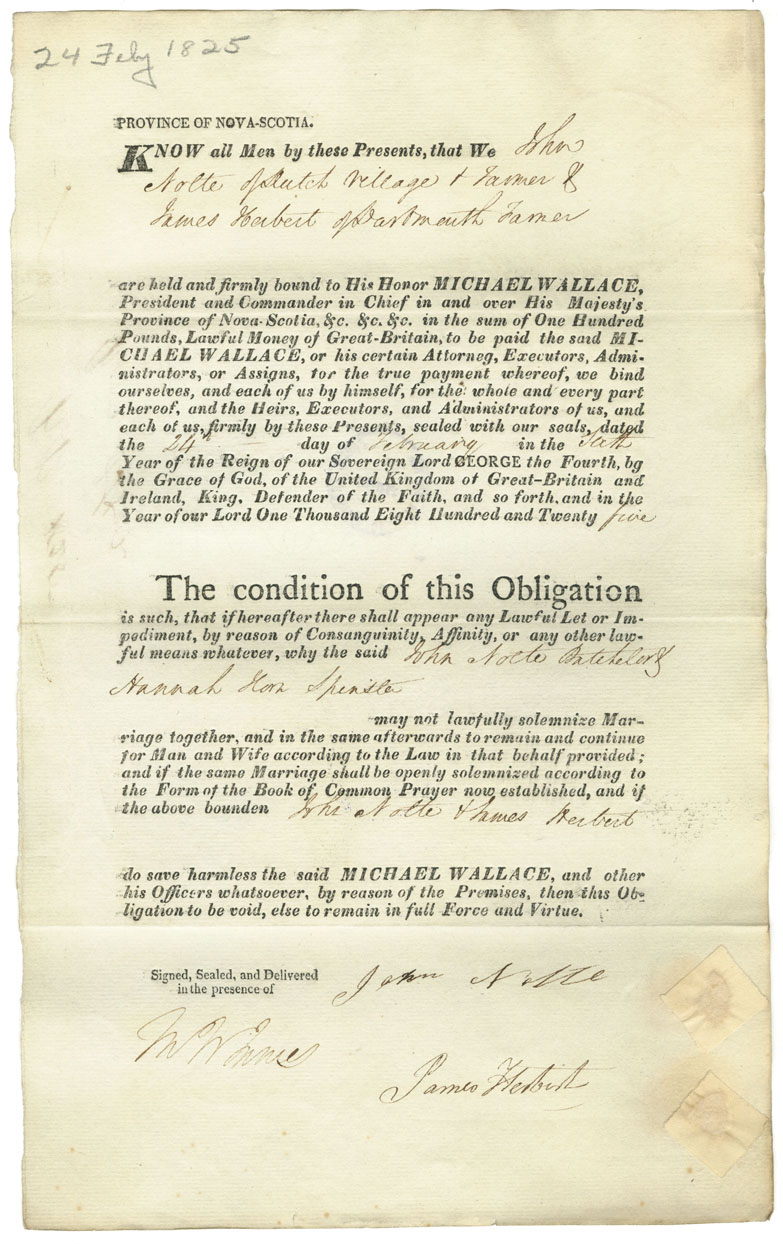 24 Feby 1825
PROVINCE OF NOVA-SCOTIA.
KNOW all Men by these Presents, that We John
Nolte of Dutch Village + Farmer &
James Herbert of Dartmouth Farmer
are held and firmly bound to His Honor MICHAEL WALLACE,
President and Commander in Chief in and over His Majesty's
Province of Nova-Scotia, &c. &c. &c. in the sum of One Hundred
Pounds, Lawful Money of Great-Britain, to be paid the said MI-
CHAEL WALLACE, or his certain Attorneg, Executors, Admi-
nistrators, or Assigns, for the true payment whereof, we bind
ourselves, and each of us by himself, for the whole and every part
thereof, and the Heirs, Executors, and Administrators of us, and
each of us, firmly by these Presents, sealed with our seals, dated
the 24th day of February in the Sixth
Year of the Reign of our Sovereign Lord GEORGE the Fourth, bg
the Grace of God, of the United Kingdom of Great-Britain and
Ireland, King, Defender of the Faith, and so forth, and in the
Year of our Lord One Thousand Eight Hundred and Twenty five
The condition of this Obligation
is such, that if hereafter there shall appear any Lawful Let or Im-
pediment, by reason of Consanguinity, Affinity, or any other law-
ful means whatever, why the said John Nolte Batchelor &
Hannah Horn Spinster
may not lawfully solemnize Mar-
riage together, and in the same afterwards to remain and continue
for Man and Wife according to the Law in that behalf provided;
and if the same Marriage shall be openly solemnized according to
the Form of the Book of Common Prayer now established, and if
the above bounden John Nolte + James Herbert
do save harmless the said MICHAEL WALLACE, and other
his Officers whatsoever, by reason of the Premises, then this Ob-
ligation to be void, else to remain in full Force and Virtue.
Signed, Sealed, and Delivered
in the presence of
John Nolte
James Herbert